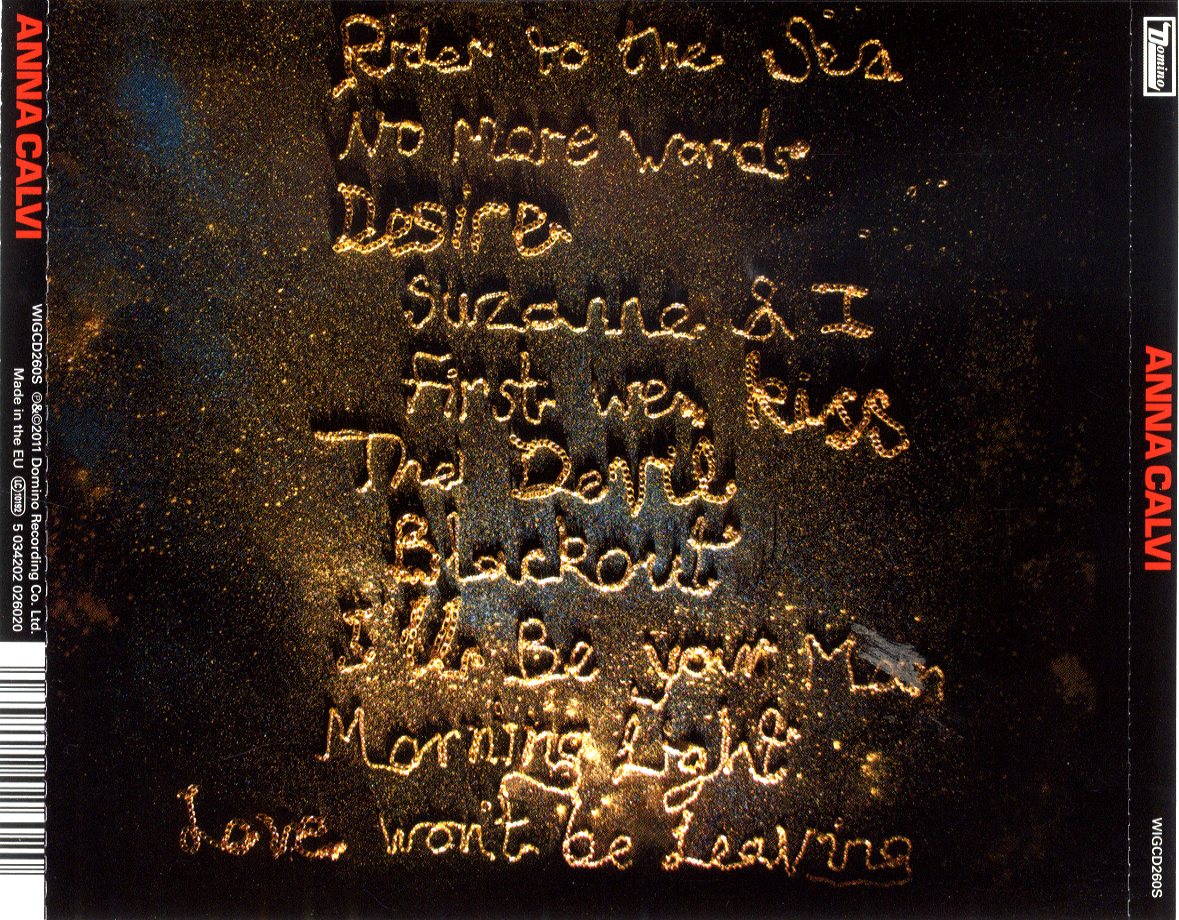 ANNA CALVI
WIGCD260S ℗&©2011 Domino Recording Co. Ltd.
Made in the EU LC 10192 5 034202 026020
Rider to the Sea
No More Words
Desire
Suzanne & I
First we kiss
The Devil
Blackout
I'll Be your Man
Morning Light
Love won't be Leaving
Domino
ANNA CALVI
WIGCD260S